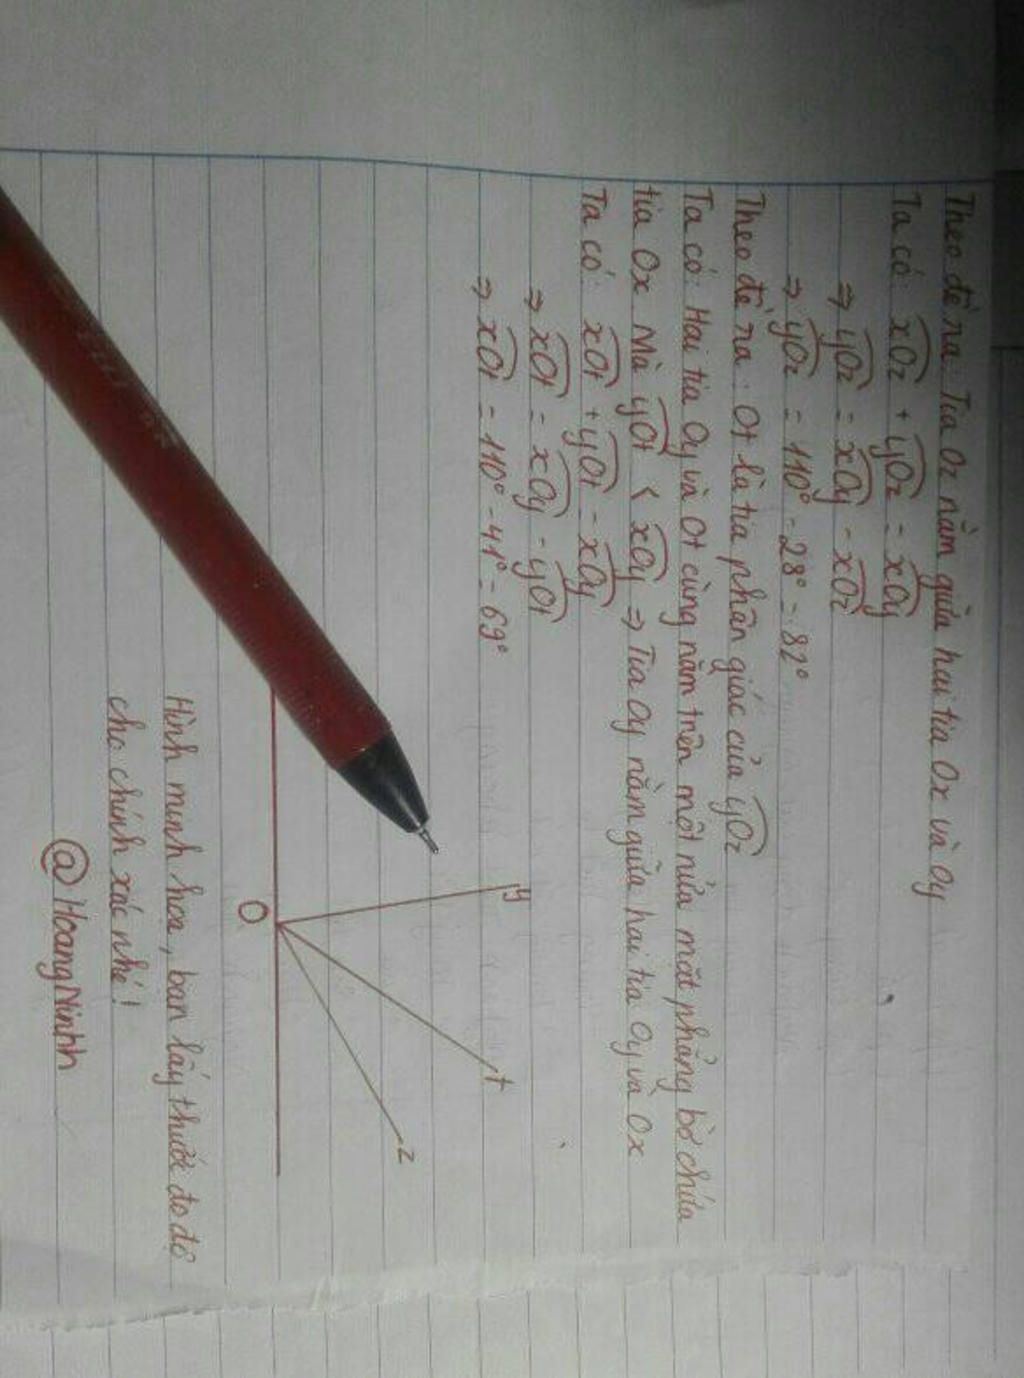 Theo đề ra: Tia Oz nằm giữa hai tia Ox và Oy
Ta có: xOz + yOz = xOy
⇒ yOz = xOy - xOz
⇒ yOz = 110° - 28° = 82°
Theo đề ra: Ot là tia phân giác của yOz
Ta có: Hai tia Oy và Ot cùng nằm trên một nửa mặt phẳng bờ chứa
tia Ox Mà yOt < xOy ⇒ Tia Oy nằm giữa hai tia Oy và Ox
Ta có: xOt + yOt = xOy
⇒ xOt = xOy - yOt
⇒ xOt = 110° - 41° = 69°
y
t
z
O
Hình minh họa, bạn lấy thước đo độ
cho chính xác nhé!
@HoangNinhh